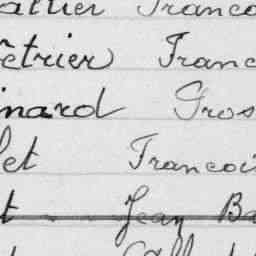 allier Franco
êtrier Franc
inard Gros
let Francois
t Jean Ba